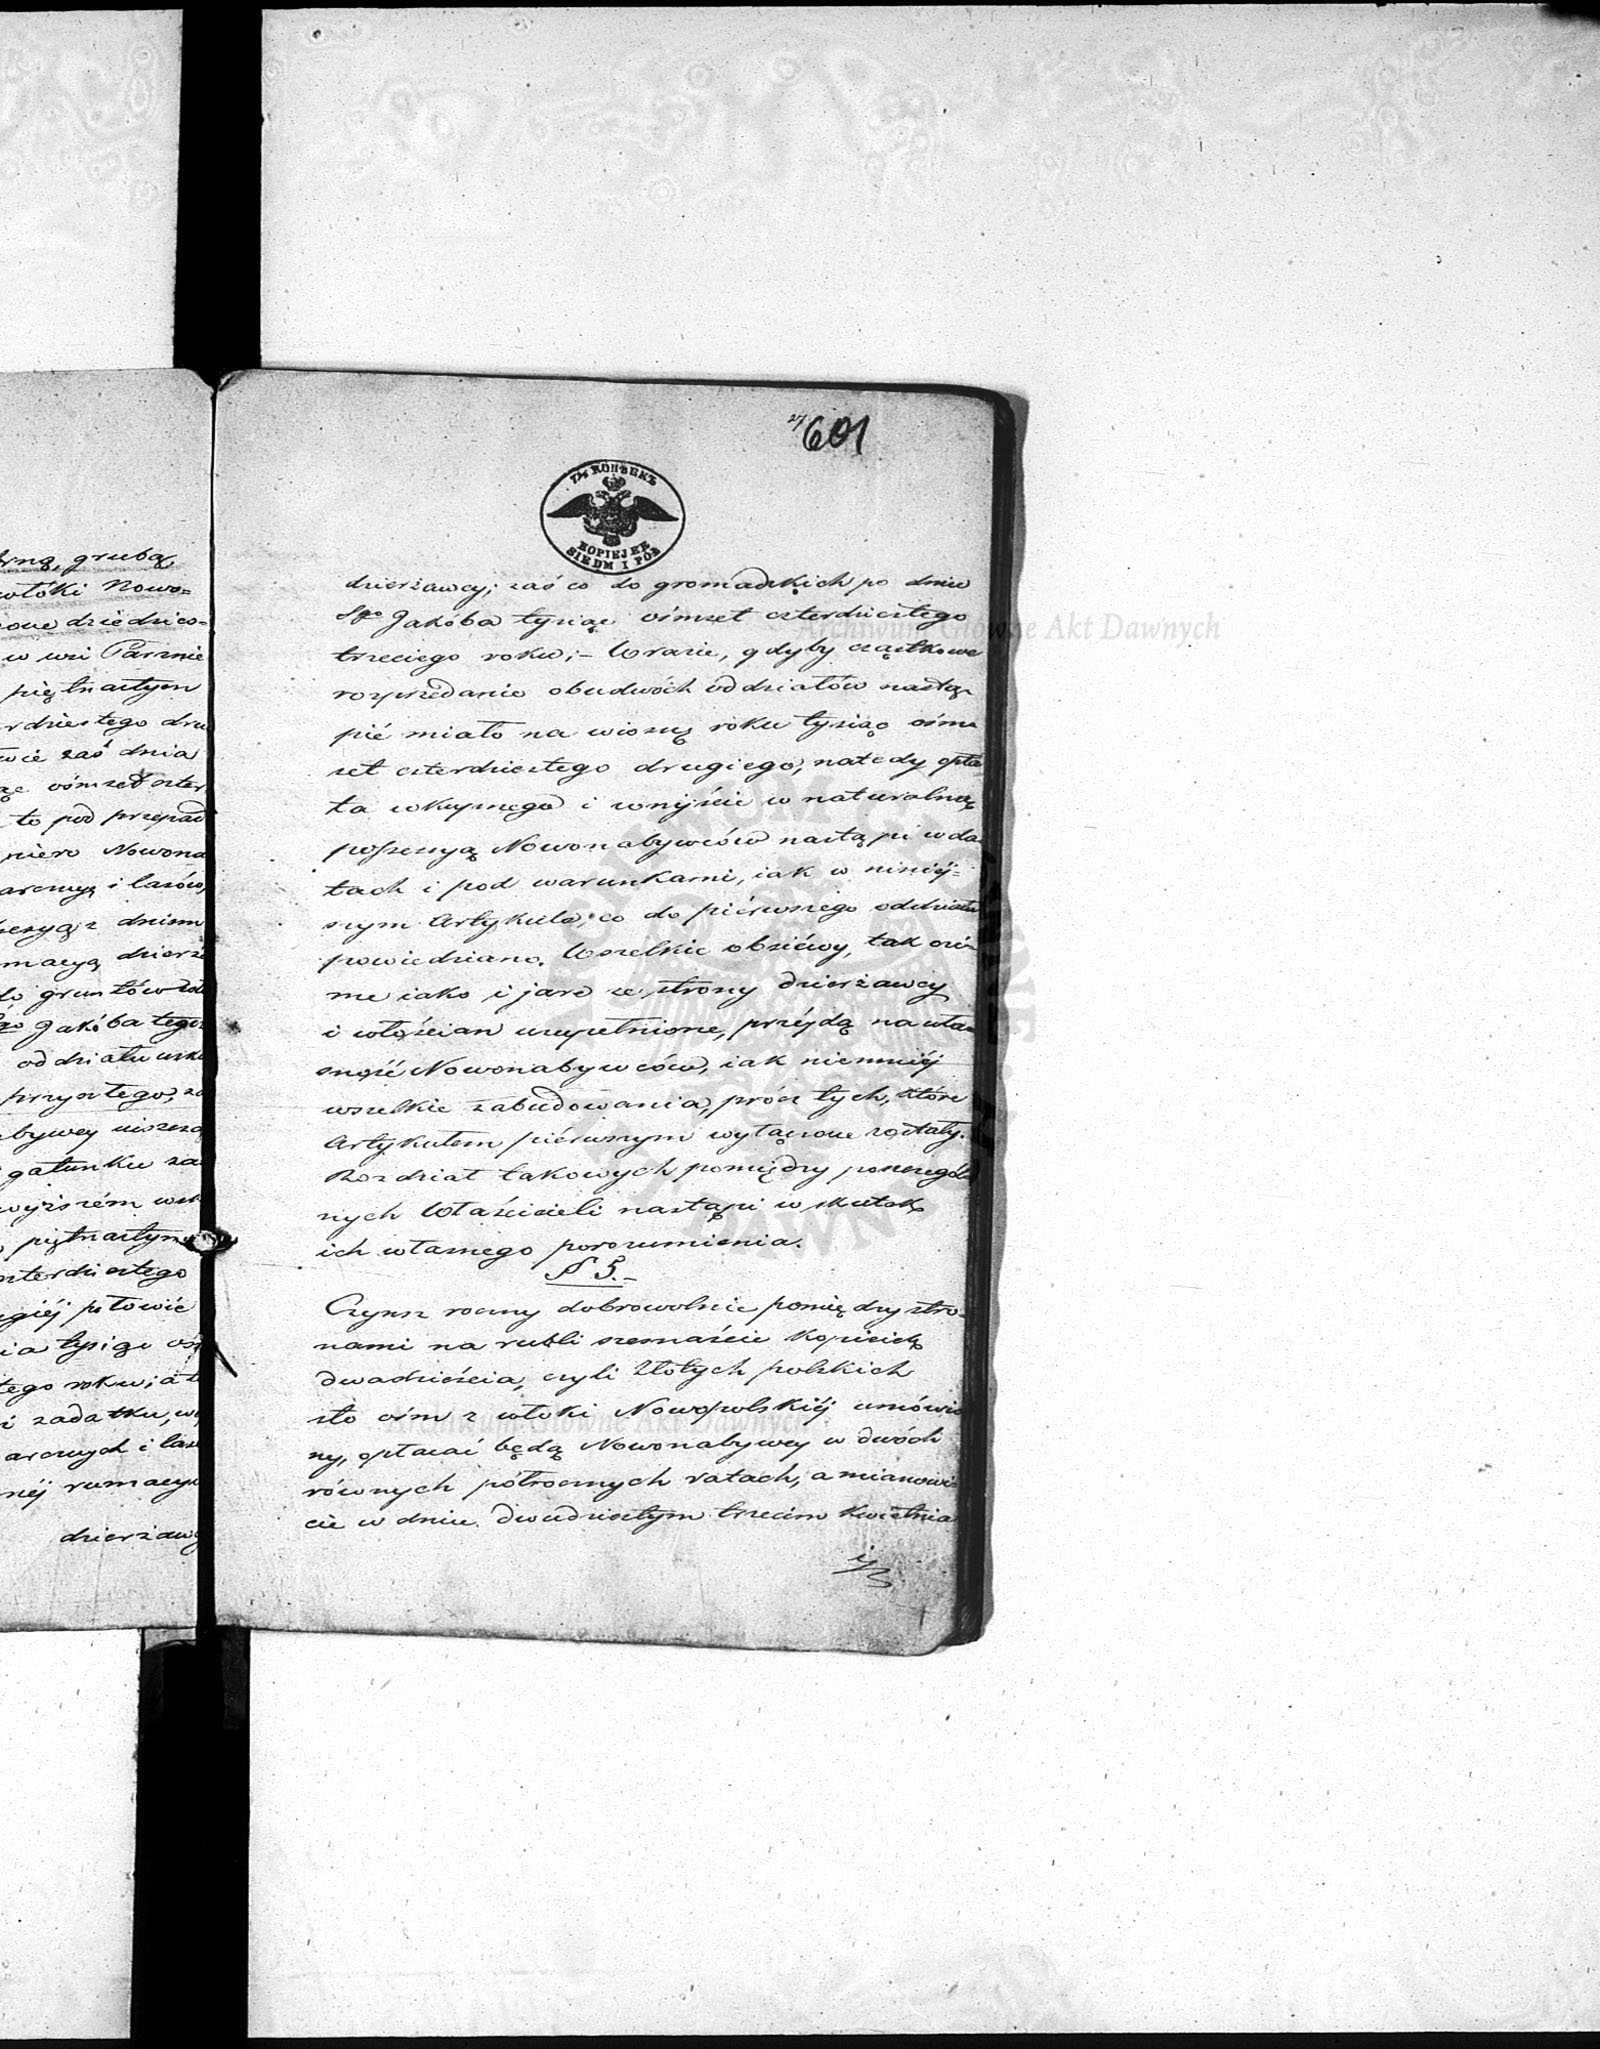 grubą,
włóki Nowo=
dziedzico=
w wsi Parznie
piętnastym
zaś dnia
to pod przepad
i lasów,
dniem
dzierż
gruntów
Jakóba tego
oddziału
przyszłego,
gatunku za
piętnastym
połowie
tysiąc
tego roku; a
zadatku,
i las
rumacyi
dzierżawcy
27 601
7½ КОПѢЕКЪ
KOPIEJEK
SIEDM I PÓŁ
dzierżawcy; zaś co do gromadzkich po dniu
Sgo Jakóba tysiąc ośmset czterdziestego
trzeciego roku; – W razie, gdyby cząstkowe
rozprzedanie obudwóch oddziałów nastą=
pić miało na wiosnę roku tysiąc ośm=
set czterdziestego drugiego, natedy opła=
ta wkupnego i wnijście w naturalną
possessyą Nowonabywców nastąpi w da=
tach i pod warunkami, iak w niniéj=
szym Artykule, co do piérwszego oddziału
powiedziano. Wszelkie obsiéwy, tak ozi=
me iako i jare ze strony dzierżawcy
i włościan uzupełnione, przéjdą na wła=
sność Nowonabywców, iak niemniéj
wszelkie zabudowania, prócz tych, które
Artykułem piérwszym wyłączone zostały.
Rozdział takowych pomiędzy poszczegól=
nych Właścicieli nastąpi w skutek
ich własnego porozumienia.
§ 5.–
Czynsz roczny dobrowolnie pomiędzy stro=
nami na rubli szesnaście kopiejek
dwadzieścia, czyli Złotych polskich
sto ośm z włoki Nowopolskiéj umówio=
ny, opłacać będą Nowonabywcy w dwóch
równych półrocznych ratach, a mianowi=
cie w dniu dwudziestym trzecim Kwietnia
i
Archiwum Główne Akt Dawnych
Archiwum Główne Akt Dawnych